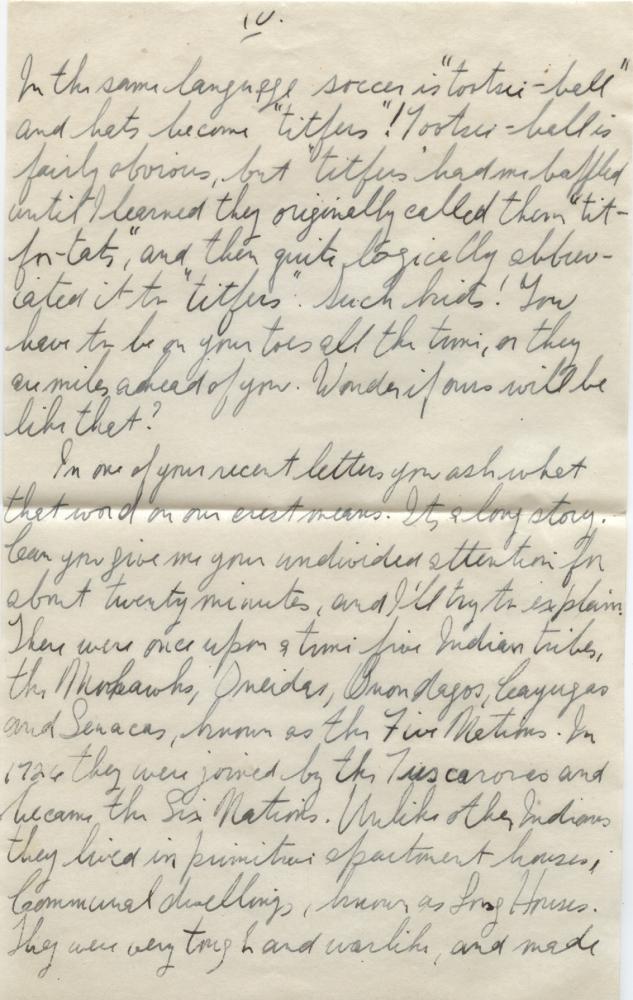 IV.
In the same language soccer is "tootsie-ball"
and hats become "titfers"! Tootsie-ball is
fairly obvious, but "titfers" had me baffled
until I learned they originally called them "tit-
for-tats", and then quite logically abbrev-
iated it to "titfers". Such kids! You
have to be on your toes all the time, or they
are miles ahead of you. Wonder if ours will be
like that?
In one of your recent letters you ask what
that word on our crest means. It's a long story.
Can you give me your undivided attention for
about twenty minutes, and I'll try to explain.
There were once upon a time five Indian tribes,
the Mohawks, Oneidas, Onondagos, Cayugas
and Senacas, known as the Five Nations. In
they were joined by the Tuscaroras and
became the Six Nations. Unlike other Indians
they lived in primitive apartment houses,
Communal dwellings, known as Long Houses.
They were very tough and warlike, and made